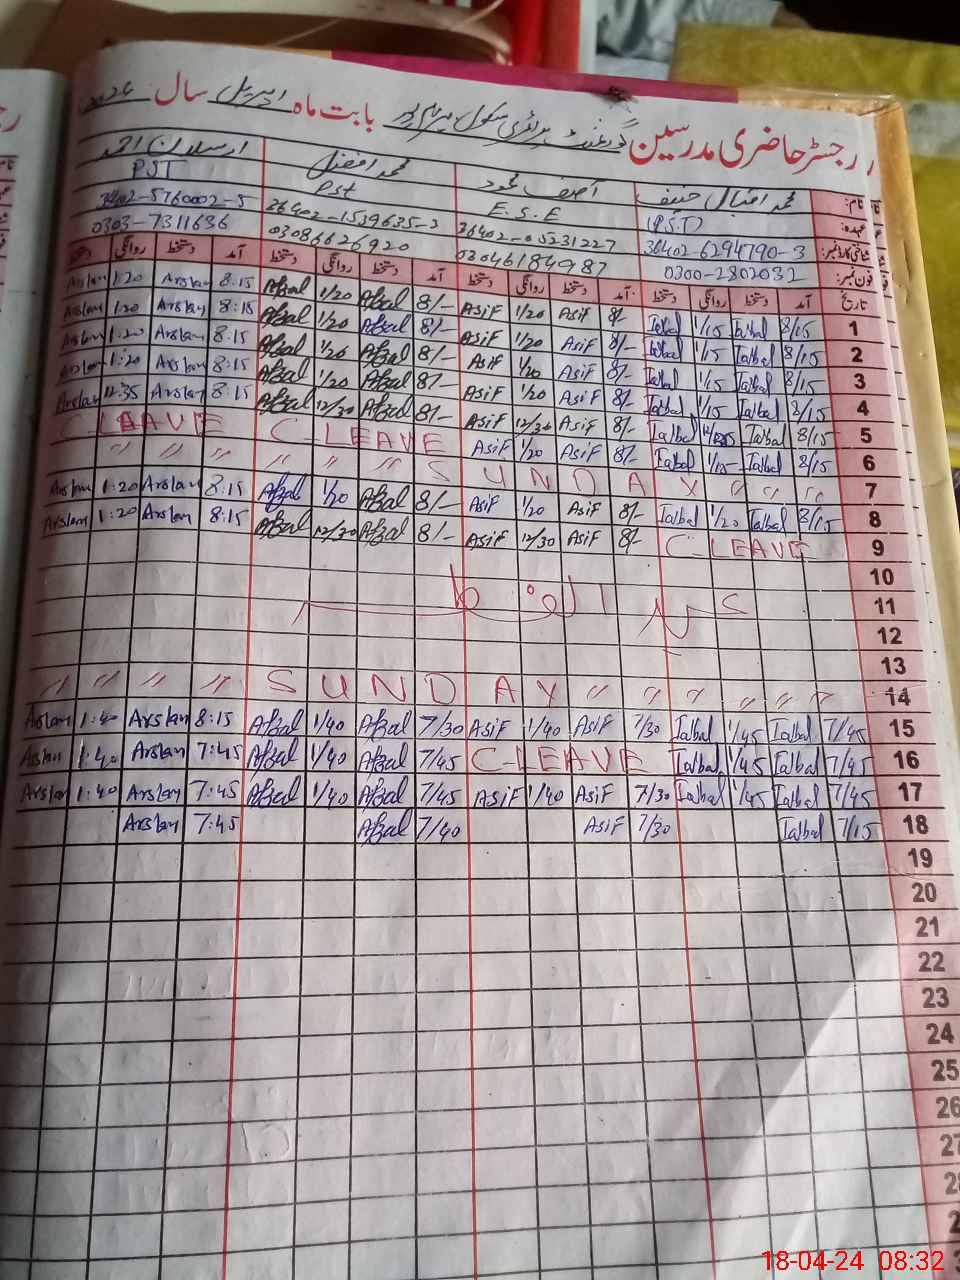 رجسٹر حاضری مدرسین گورنمنٹ پرائمری سکول بابت ماہ اپریل سال 2024
نام: محمد اقبال حنیف آصف محمود محمد افضل ارسلان احمد
عہدہ: (P.S.T) E.S.E Pst PST
شناختی کارڈ نمبر: 36402-6294790-3 36402-1539635-3 36402-5760002-5
فون نمبر: 0300-2802032 03046184987 03086626920 0303-7311636
تاریخ آمد دستخط روانگی دستخط آمد دستخط روانگی دستخط آمد دستخط روانگی دستخط آمد دستخط روانگی دستخط
Arslan 1:20 Arslan 8:15 Afzal 1/20 Afzal 8/- Asif 1/20 Asif 8/- Iqbal 1/15 Iqbal 8/15 1
Arslan 1:20 Arslan 8:15 Afzal 1/20 Afzal 8/- Asif 1/20 Asif 8/- Iqbal 1/15 Iqbal 8/15 2
Arslan 1:20 Arslan 8:15 Afzal 1/20 Afzal 8/- Asif 1/20 Asif 8/- Iqbal 1/15 Iqbal 8/15 3
Arslan 1:20 Arslan 8:15 Afzal 1/20 Afzal 8/- Asif 1/20 Asif 8/- Iqbal 1/15 Iqbal 8/15 4
Arslan 12:35 Arslan 8:15 Afzal 12/30 Afzal 8/- Asif 12/30 Asif 8/- Iqbal Iqbal 8/15 5
C-LEAVE C-LEAVE Asif 1/20 Asif 8/- Iqbal 1/15 Iqbal 8/15 6
" " " " " " SUNDAY " " " 7
Arslan 1:20 Arslan 8:15 Afzal 1/20 Afzal 8/- Asif 1/20 Asif 8/- Iqbal 1/20 Iqbal 8/15 8
Arslan 1:20 Arslan 8:15 Afzal 12/30 Afzal 8/- Asif 12/30 Asif 8/- C-LEAVE 9
10
عید الفطر 11
12
13
" " " " SUNDAY " " " " " " 14
Arslan 1:40 Arslan 8:15 Afzal 1/40 Afzal 7/30 Asif 1/40 Asif 7/30 Iqbal 1/45 Iqbal 7/45 15
Arslan 1:40 Arslan 7:45 Afzal 1/40 Afzal 7/45 C-LEAVE Iqbal 1/45 Iqbal 7/45 16
Arslan 1:40 Arslan 7:45 Afzal 1/40 Afzal 7/45 Asif 1/40 Asif 7/30 Iqbal 1/45 Iqbal 7/45 17
Arslan 7:45 Afzal 7/40 Asif 7/30 Iqbal 7/15 18
19
20
21
22
23
24
25
26
27
18-04-24 08:32